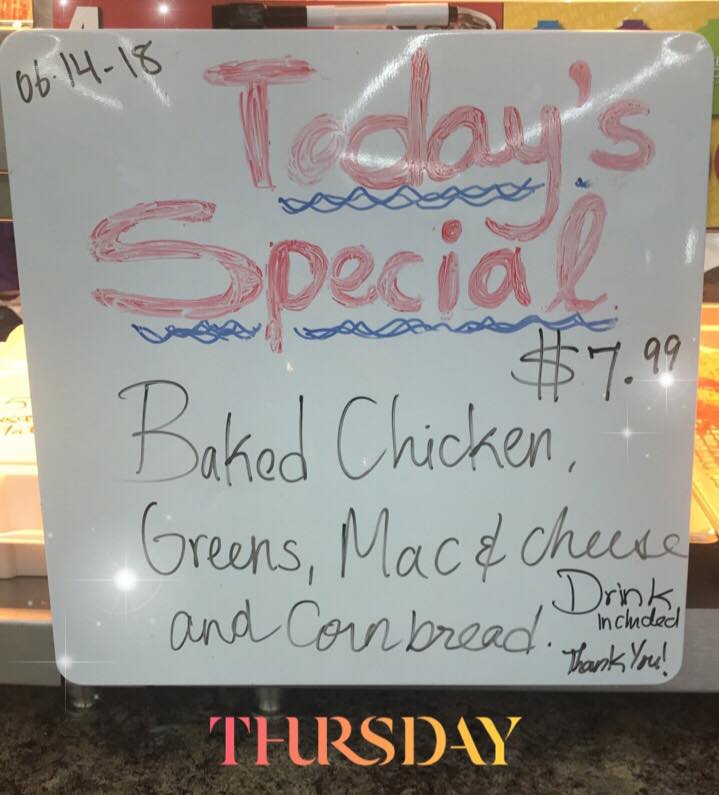 06-14-18
Today's
Special
$7.99
Baked Chicken,
Greens, Mac & cheese
and Cornbread.
Drink
included
Thank You!
THURSDAY